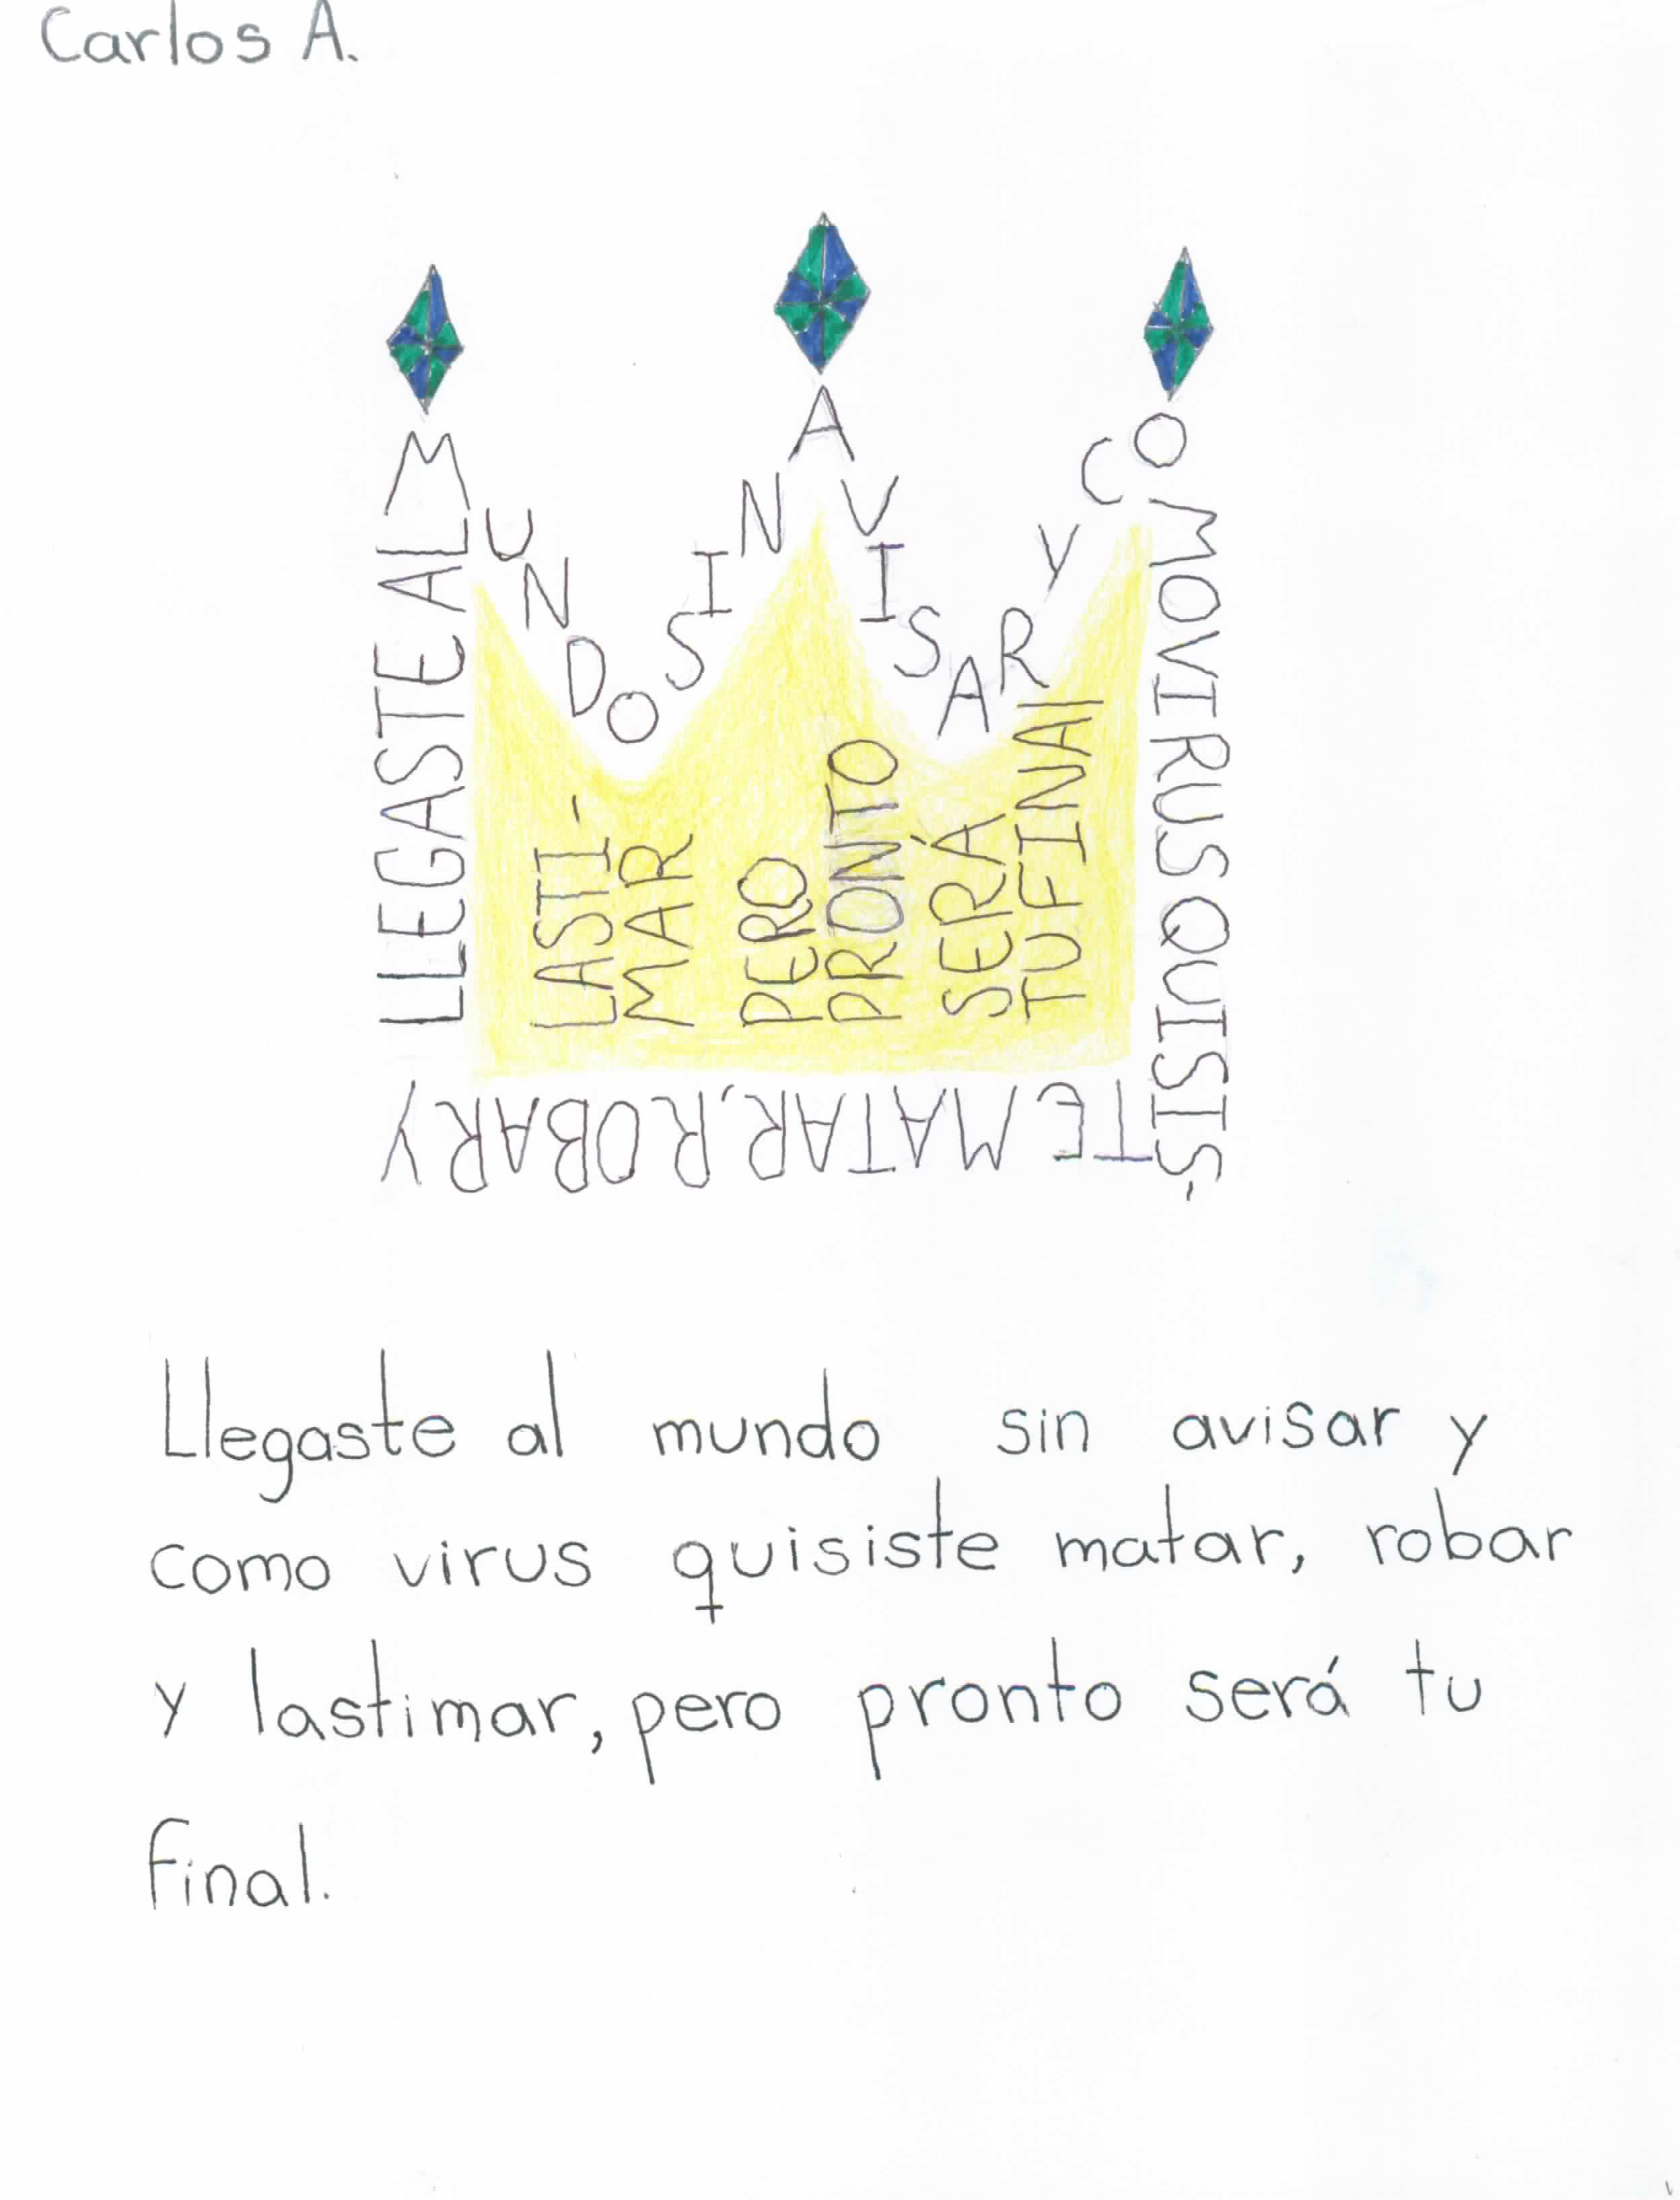 Carlos A.
LLEGASTE AL MUNDO SIN AVISAR Y COMO VIRUS QUISIS-
TE MATAR, ROBAR Y
LASTI-
MAR
PERO
PRONTO
SERÁ
TU FINAL
Llegaste al mundo sin avisar y
como virus quisiste matar, robar
y lastimar, pero pronto será tu
final.